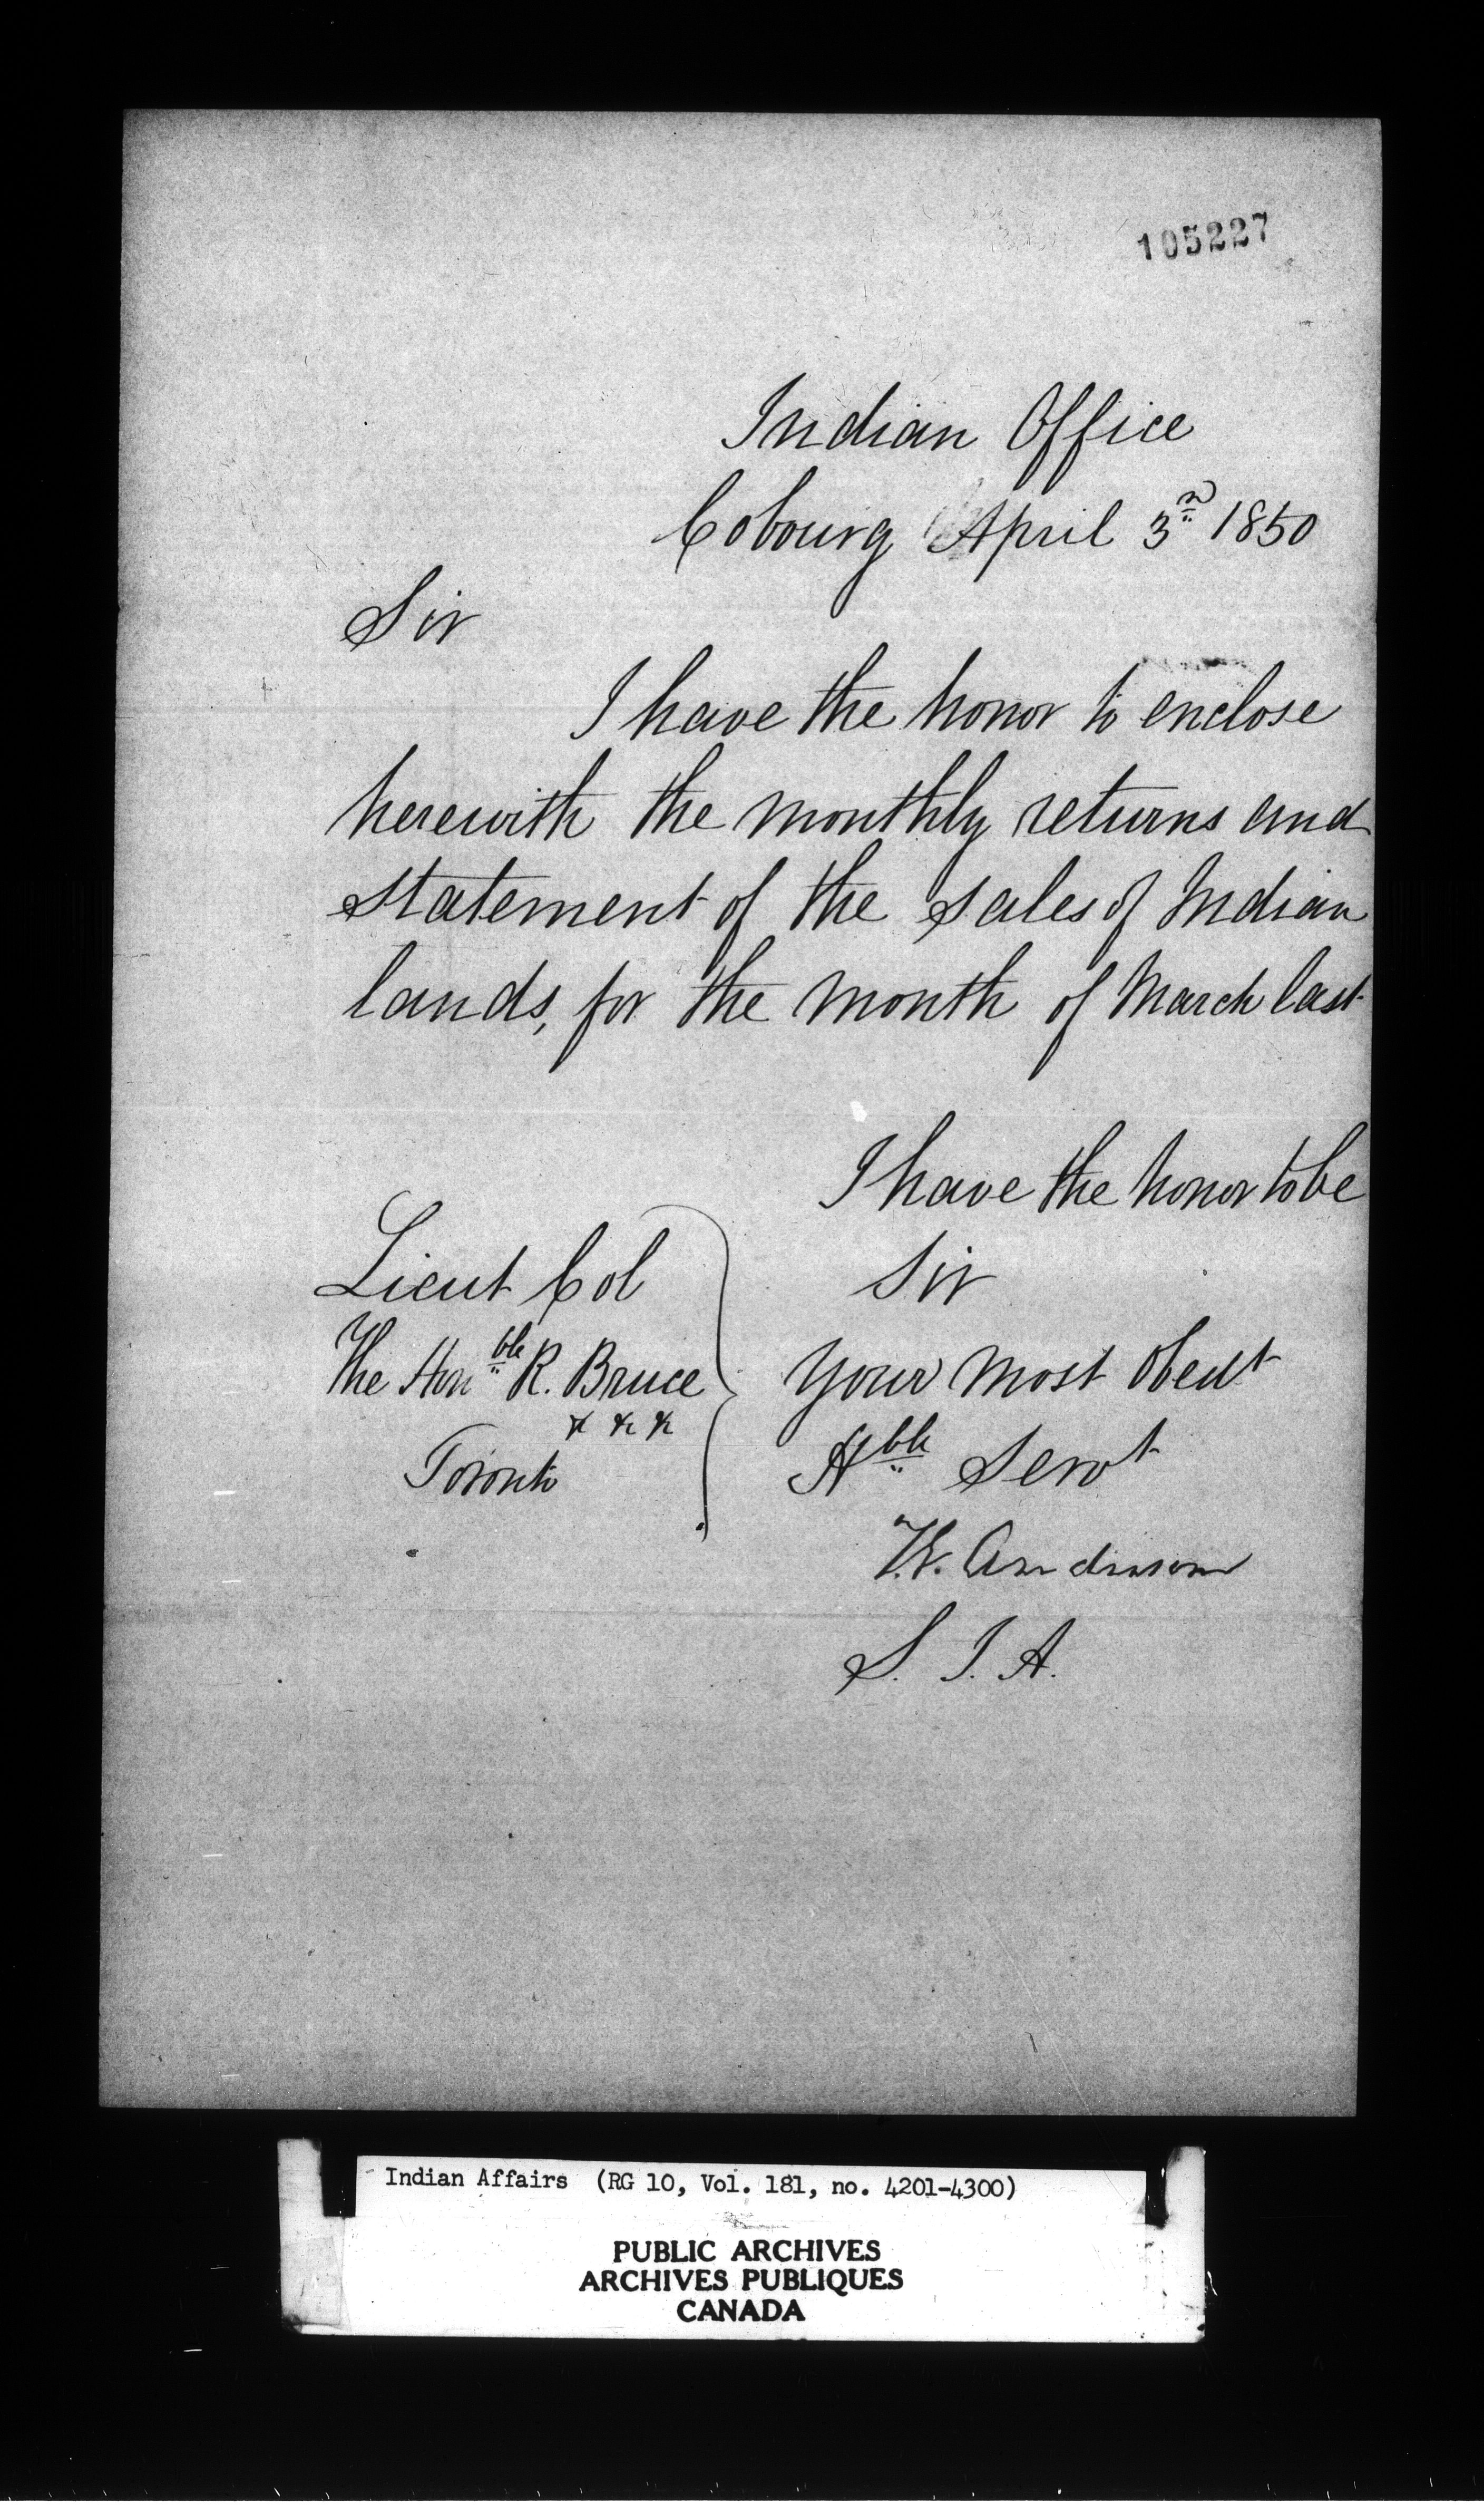 105227
Indian Office
Cobourg April 3rd 1850
Sir
I have the honor to enclose
herewith the monthly returns and
statement of the sales of Indian
lands, for the month of March last
I have the honor to be
Sir
Your most obedt
Hble Servt
T.G. Anderson
S. I. A.
Lieut Col
The Honble R. Bruce
Toronto
Indian Affairs (RG 10, Vol. 181, no. 4201-4300)
PUBLIC ARCHIVES
ARCHIVES PUBLIQUES
CANADA